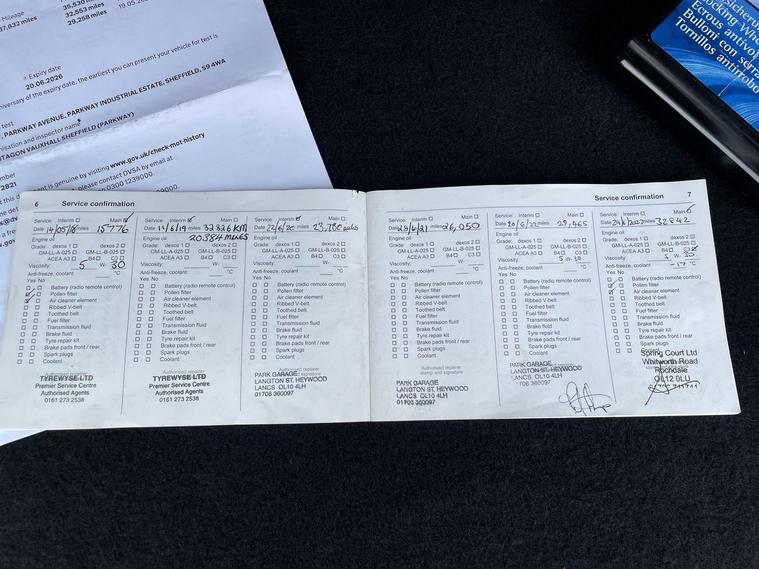 Mileage
37,832 miles
35,530
32,553 miles
29,258 miles
19.05
Expiry date
20.06.2026
niversary of the expiry date, the earliest you can present your vehicle for test is
test
, PARKWAY AVENUE, PARKWAY INDUSTRIAL ESTATE, SHEFFIELD, S9 4WA
nisation and inspector name
NTAGON VAUXHALL SHEFFIELD (PARKWAY)
ent is genuine by visiting www.gov.uk/check-mot-history
please contact DVSA by email at
0300 1239000.
2821
Tornillos antirrobo
Bulloni con
Ecrous antivol
6 Service confirmation
Service: Interim Main
Date 14/05/18 miles 15776
Engine oil
Grade: dexos 1 dexos 2
GM-LL-A-025 GM-LL-B-025
ACEA A3 B4 C3
Viscosity: 5 W- 30
Anti-freeze, coolant °C
Yes No
Battery (radio remote control)
Pollen filter
Air cleaner element
Ribbed V-belt
Toothed belt
Fuel filter
Transmission fluid
Brake fluid
Tyre repair kit
Brake pads front / rear
Spark plugs
Coolant
TYREWYSE LTD
Premier Service Centre
Authorised Agents
0161 273 2538
Service: Interim Main
Date 11/6/19 miles 32826 KM
20384 MILES
Engine oil
Grade: dexos 1 dexos 2
GM-LL-A-025 GM-LL-B-025
ACEA A3 B4 C3
Viscosity: W-
Anti-freeze, coolant °C
Yes No
Battery (radio remote control)
Pollen filter
Air cleaner element
Ribbed V-belt
Toothed belt
Fuel filter
Transmission fluid
Brake fluid
Tyre repair kit
Brake pads front / rear
Spark plugs
Coolant
TYREWYSE LTD
Premier Service Centre
Authorised Agents
0161 273 2538
Service: Interim Main
Date 22/6/20 miles
Engine oil
Grade: dexos 1 dexos 2
GM-LL-A-025 GM-LL-B-025
ACEA A3 B4 C3
Viscosity: W-
Anti-freeze, coolant °C
Yes No
Battery (radio remote control)
Pollen filter
Air cleaner element
Ribbed V-belt
Toothed belt
Fuel filter
Transmission fluid
Brake fluid
Tyre repair kit
Brake pads front / rear
Spark plugs
Coolant
PARK GARAGE
LANGTON ST, HEYWOOD
LANCS OL10 4LH
01706 360097
Service confirmation 7
Service: Interim Main
Date miles 26,050
Engine oil
Grade: dexos 1 dexos 2
GM-LL-A-025 GM-LL-B-025
ACEA A3 B4 C3
Viscosity: W-
Anti-freeze, coolant °C
Yes No
Battery (radio remote control)
Pollen filter
Air cleaner element
Ribbed V-belt
Toothed belt
Fuel filter
Transmission fluid
Brake fluid
Tyre repair kit
Brake pads front / rear
Spark plugs
Coolant
Authorised repairer
stamp and signature
PARK GARAGE
LANGTON ST, HEYWOOD
LANCS OL10 4LH
01706 360097
Service: Interim Main
Date miles
Engine oil
Grade: dexos 1 dexos 2
GM-LL-A-025 GM-LL-B-025
ACEA A3 B4 C3
Viscosity: 5 W- 30
Anti-freeze, coolant °C
Yes No
Battery (radio remote control)
Pollen filter
Air cleaner element
Ribbed V-belt
Toothed belt
Fuel filter
Transmission fluid
Brake fluid
Tyre repair kit
Brake pads front / rear
Spark plugs
Coolant
PARK GARAGE
LANGTON ST, HEYWOOD
LANCS OL10 4LH
01706 360097
Service: Interim Main
Date miles 32842
Engine oil
Grade: dexos 1 dexos 2
GM-LL-A-025 GM-LL-B-025
ACEA A3 B4 C3
Viscosity: 5 W- 30
Anti-freeze, coolant -17 °C
Yes No
Battery (radio remote control)
Pollen filter
Air cleaner element
Ribbed V-belt
Toothed belt
Fuel filter
Transmission fluid
Brake fluid
Tyre repair kit
Brake pads front / rear
Spark plugs
Spring Court Ltd
Whitworth Road
Rochdale
OL12 0LU